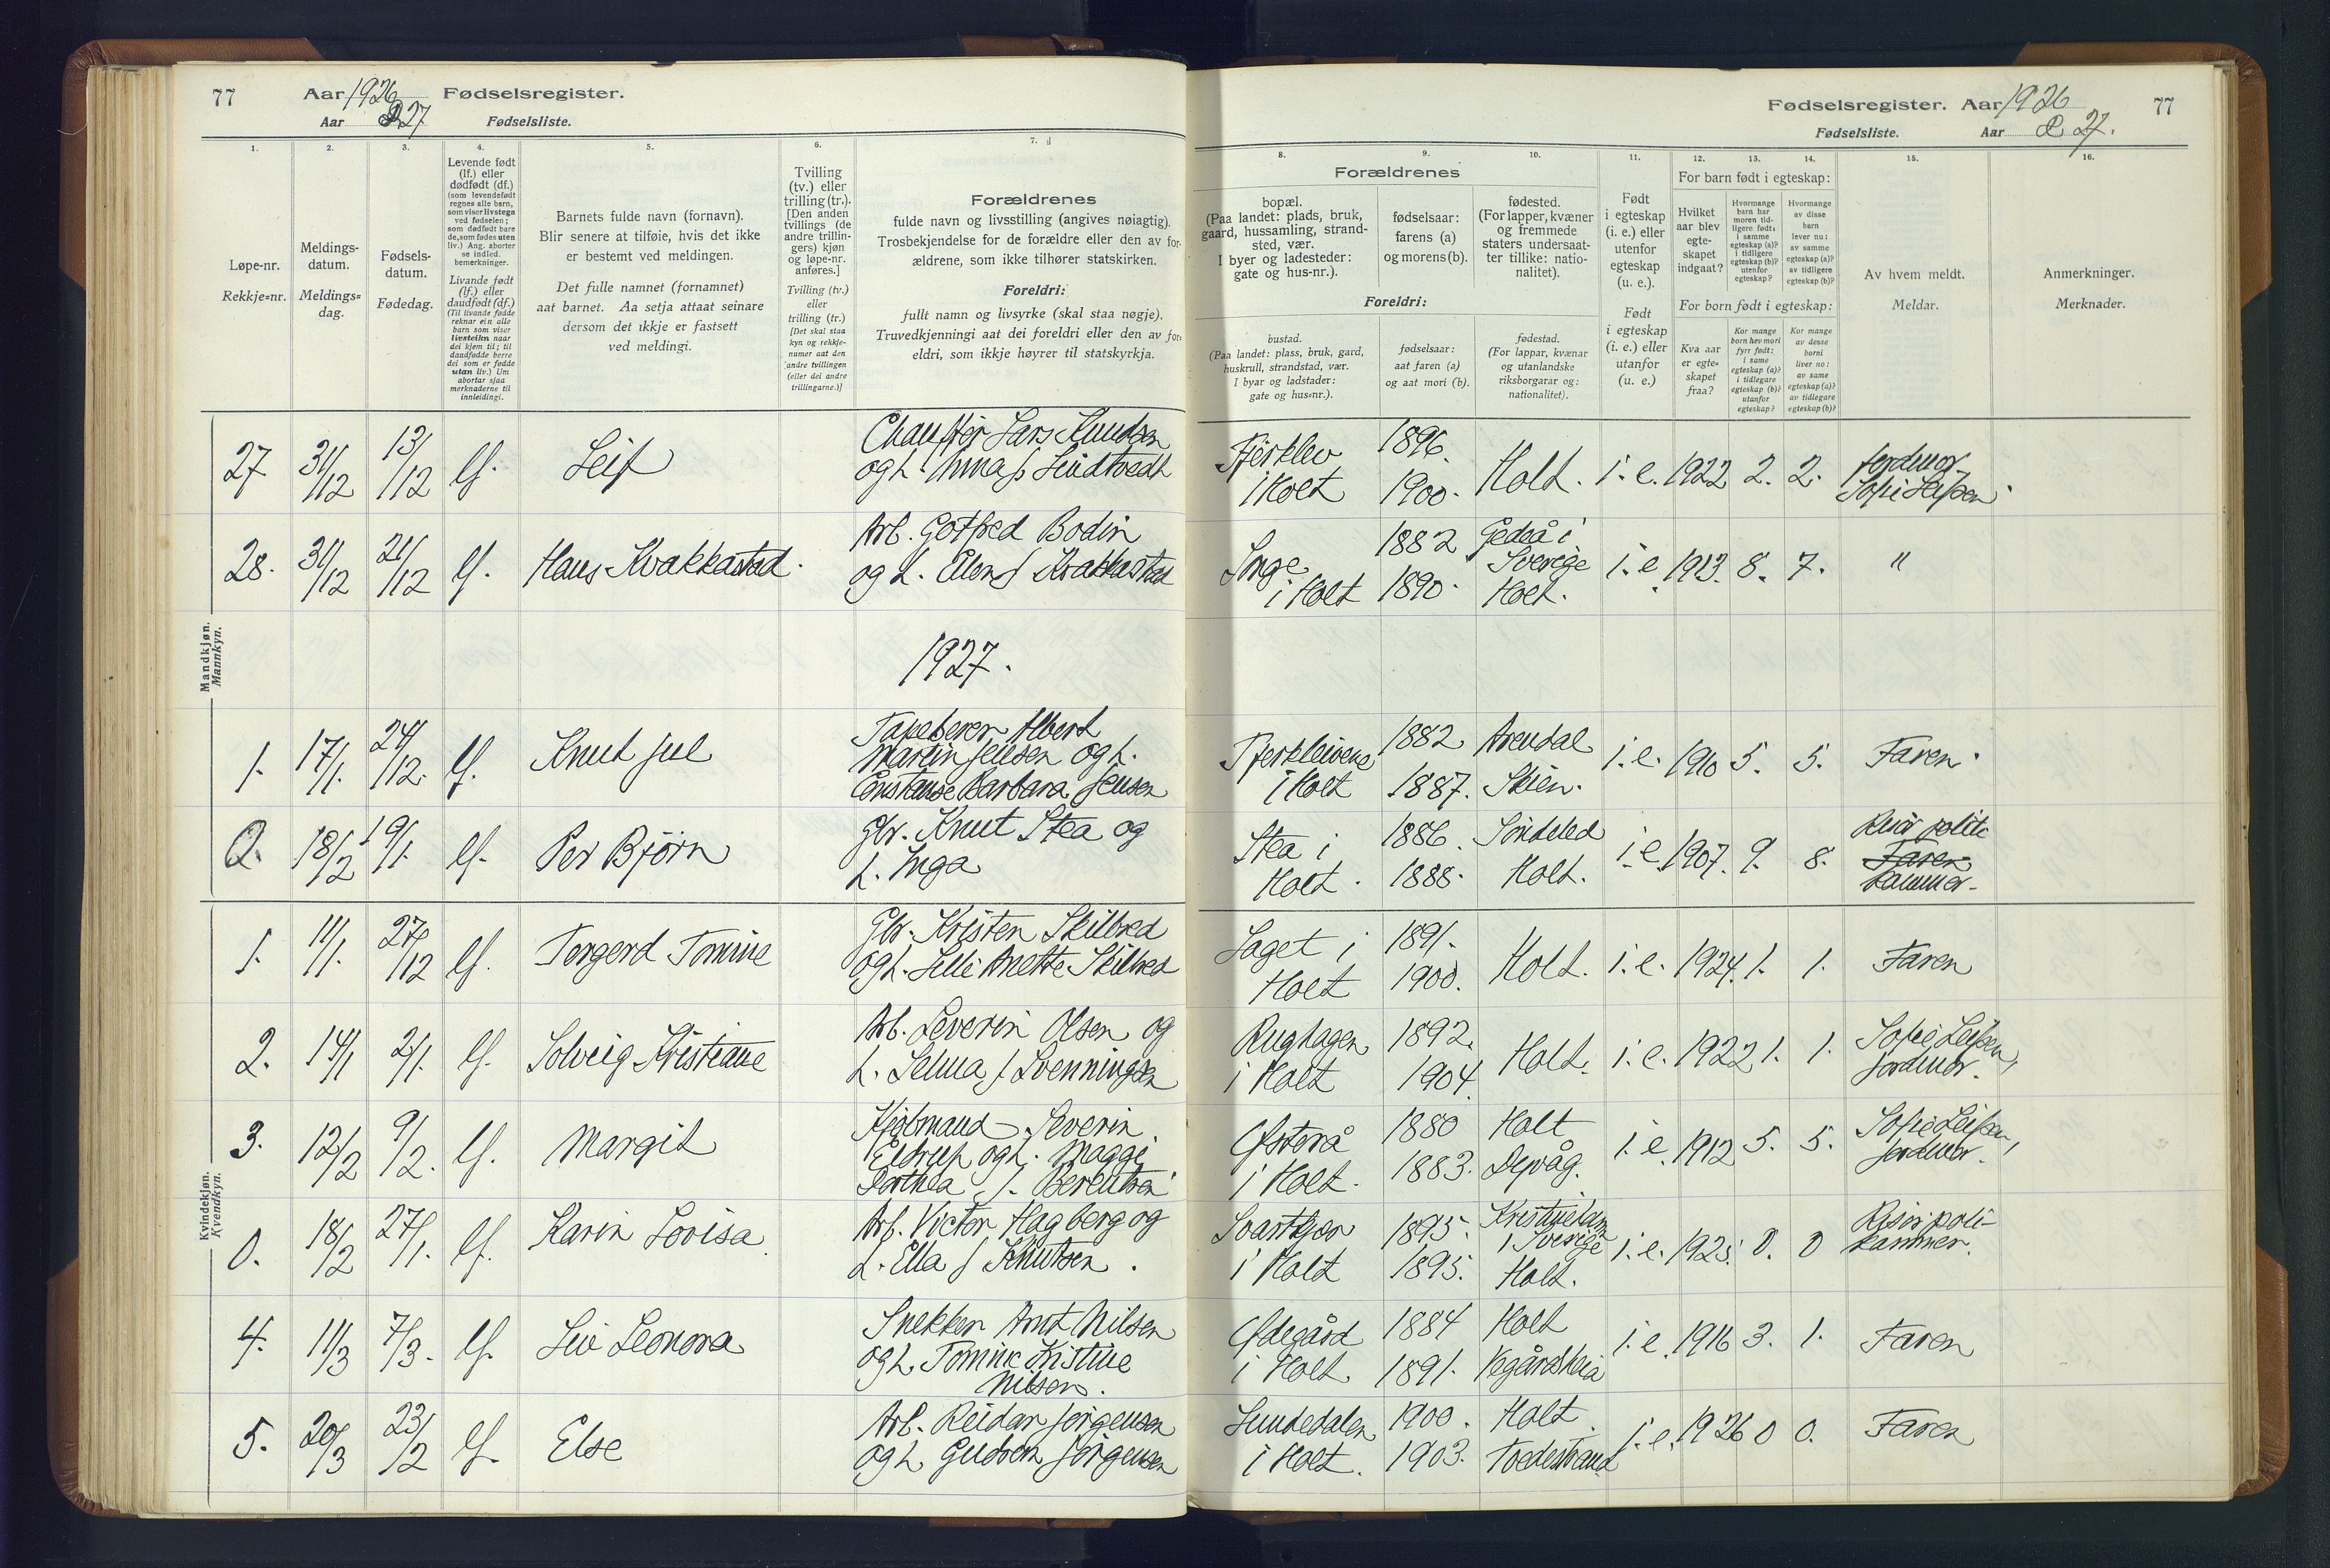 77 Aar 1926 Fødselsregister.
Aar & 27 Fødselsliste.
Fødselsregister. Aar 1926 77
Fødselsliste. Aar & 27.
1. 2. 3. 4. 5. 6. 7.
Løpe-nr.
Rekkje=nr.
Meldings-
datum.
Meldings=
dag.
Fødsels-
datum.
Fødedag.
Levende født
(lf.) eller
dødfødt (df.)
(som levendefødt
regnes alle barn,
som viser livstegn
ved fødselen;
som dødfødt bare
de, som fødes uten
liv.) Ang. aborter
se indled.
bemerkninger.
Livande født
(lf.) eller
daudfødt (df.)
(Til livande fødde
reknar ein alle
barn som viser
livsteikn naar
dei kjem til; til
daudfødde berre
dei som er fødde
utan liv.) Um
abortar sjaa
merknaderne til
innleidingi.
Barnets fulde navn (fornavn).
Blir senere at tilføie, hvis det ikke
er bestemt ved meldingen.
Det fulle namnet (fornamnet)
aat barnet. Aa setja attaat seinare
dersom det ikkje er fastsett
ved meldingi.
Tvilling
(tv.) eller
trilling (tr.).
[Den anden
tvillings (de
andre trillin-
gers) kjøn
og løpe-nr.
anføres.]
Tvilling (tv.)
eller
trilling (tr.)
[Det skal staa
kyn og rekkje-
numer aat den
andre tvillingen
(eller dei andre
trillingarne.)]
Forældrenes
fulde navn og livsstilling (angives nøiagtig).
Trosbekjendelse for de forældre eller den av for-
ældrene, som ikke tilhører statskirken.
Foreldri:
fullt namn og livsyrke (skal staa nøgje).
Truvedkjenningi aat dei foreldri eller den av for-
eldri, som ikkje høyrer til statskyrkja.
8. 9. 10. 11. 12. 13. 14. 15. 16.
Forældrenes
bopæl.
(Paa landet: plads, bruk,
gaard, hussamling, strand-
sted, vær.
I byer og ladesteder:
gate og hus-nr.).
fødselsaar:
farens (a)
og morens (b).
fødested.
(For lapper, kvæner
og fremmede
staters undersaat-
ter tillike: natio-
nalitet).
Foreldri:
bustad.
(Paa landet: plass, bruk, gard,
huskrull, strandstad, vær.
I byar og ladstader:
gate og hus=nr.).
fødselsaar:
aat faren (a)
og aat mori (b).
fødestad.
(For lappar, kvænar
og utanlandske
riksborgarar og:
nationalitet).
Født
i egteskap
(i. e.) eller
utenfor
egteskap
(u. e.).
Født
i egteskap
(i. e.) eller
utanfor
(u. e.)
For barn født i egteskap:
Hvilket
aar blev
egte-
skapet
indgaat?
Hvormange
barn har
moren tid-
ligere født:
i samme
egteskap (a)?
i tidligere
egteskap (b)?
utenfor
egteskap?
Hvormange
av disse
barn
lever nu:
av samme
egteskap (a)?
av tidligere
egteskap (b)?
For born født i egteskap:
Kva aar
er egte-
skapet
fraa?
Kor mange
born hev mori
fyrr født:
i same
egteskap (a)?
i tidlegare
egteskap (b)?
utanfor
egteskap?
Kor mange
av desse
borni
liver no:
av same
egteskap (a)?
av tidlegare
egteskap (b)?
Av hvem meldt.
Meldar.
Anmerkninger.
Merknader.
Mandkjøn.
Mannkyn.
27 31/12 13/12 lf. Leif Chauffør Lars Knudsen
og h. Anna f. Lindtvedt
Fjerklev i Holt 1896. 1900. Holt. i. e. 1922 2. 2. Jordmor Sofie Leifsen.
28. 31/12 21/12 lf. Hans Kvakkastad. Arb. Gotfred Bodin
og h. Ellen f. Kvakkastad
Songe i Holt 1882 1890. Gedeå i Sverige Holt. i. e. 1913. 8. 7. "
1927.
1. 17/1. 24/12. lf. Knut Jul Tapetserer Albert
Martin Jensen og h.
Constanse Barbara Jensen
Fjerkleivene i Holt 1882 1887. Arendal Skien. i. e. 1910 5. 5. Faren.
2. 18/2 19/1. lf. Per Bjørn Gbr. Knut Stea og
h. Inga
Stea i Holt. 1886. 1888. Søndeled Holt. i. e. 1907. 9. 8. Risør politi Faren kammer.
Kvindekjøn.
Kvendkyn.
1. 11/1. 27/12 lf. Torgerd Tomine Gbr. Kristen Skilbred
og h. Lilli Anette Skilbred
Laget i Holt 1891. 1900. Holt. i. e. 1924. 1. 1. Faren
2. 14/1 2/1. lf. Solveig Kristiane Arb. Severin Olsen og
h. Selma f. Svenningsen
Rughagen i Holt 1892. 1904. Holt. i. e. 1922 1. 1. Sofie Leifsen, Jordmor.
3. 12/2 9/2. lf. Margit Kjøbmand Severin
Eldrup og h. Maggi
Dorthea f. Berentsen
Østerå i Holt. 1880 1883. Holt Dypvåg. i. e. 1912 5. 5. Sofie Leifsen, Jordmor.
0. 18/2 27/1. lf. Karin Lovisa. Arb. Victor Hagberg og
h. Ella f. Knutsen.
Svartkjær i Holt 1895. 1895. Kristinehamn i Sverige Holt. i. e. 1925. 0. 0 Risør poli- kammer.
4. 11/3 7/3. lf. Liv Leonora Snekker Arnt Nilsen
og h. Tomine Kristine
Nilsen.
Ødegård i Holt. 1884 1891. Holt Vegårdsheia i. e. 1916 3. 1. Faren
5. 20/3 23/2 lf. Else Arb. Reidar Jørgensen
og h. Gudrun Jørgensen
Lundedalen i Holt. 1900. 1903. Holt. Tvedestrand i. e. 1926 0 0. Faren